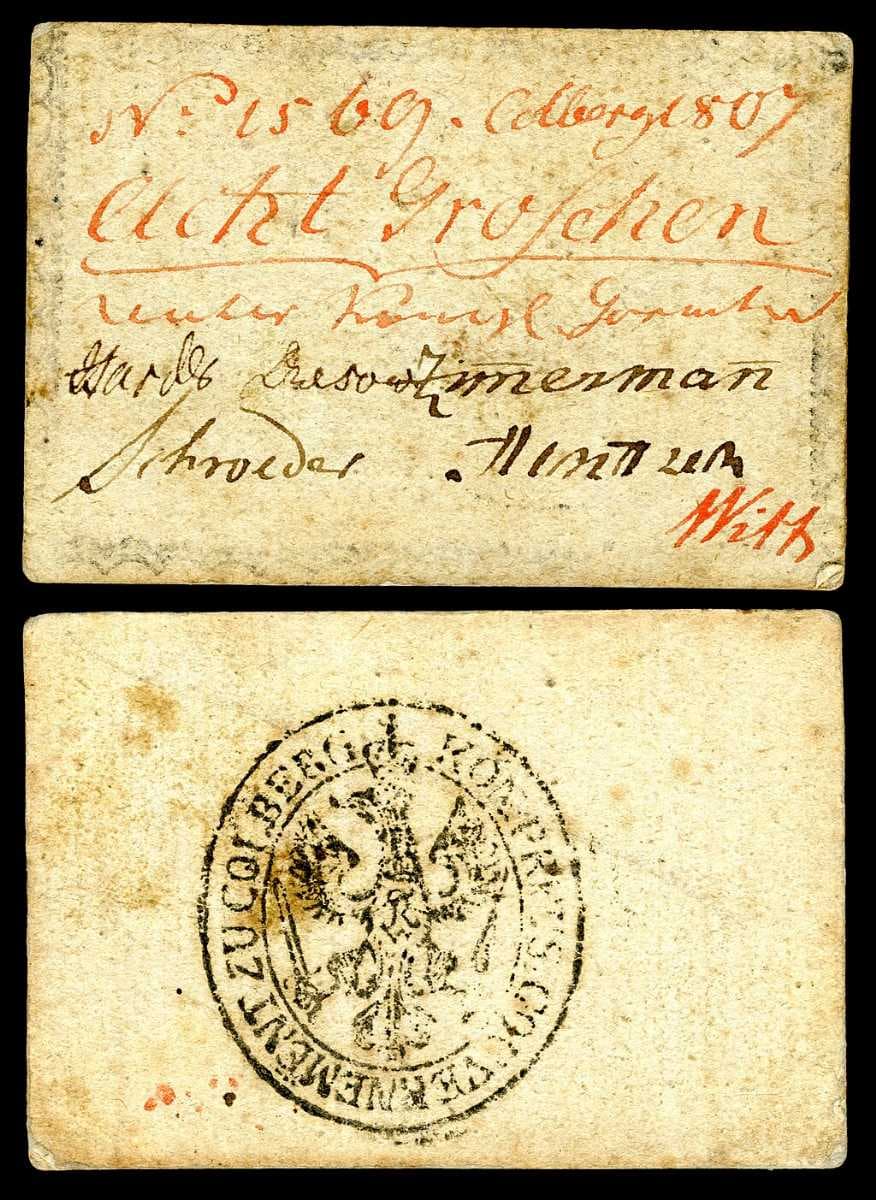 No: 1569. Colberg 1807
Acht Groschen
unter Königl
Zimmerman
Schroeder
Witt
KÖN. PREUS. GOUVERNEMENT ZU COLBERG